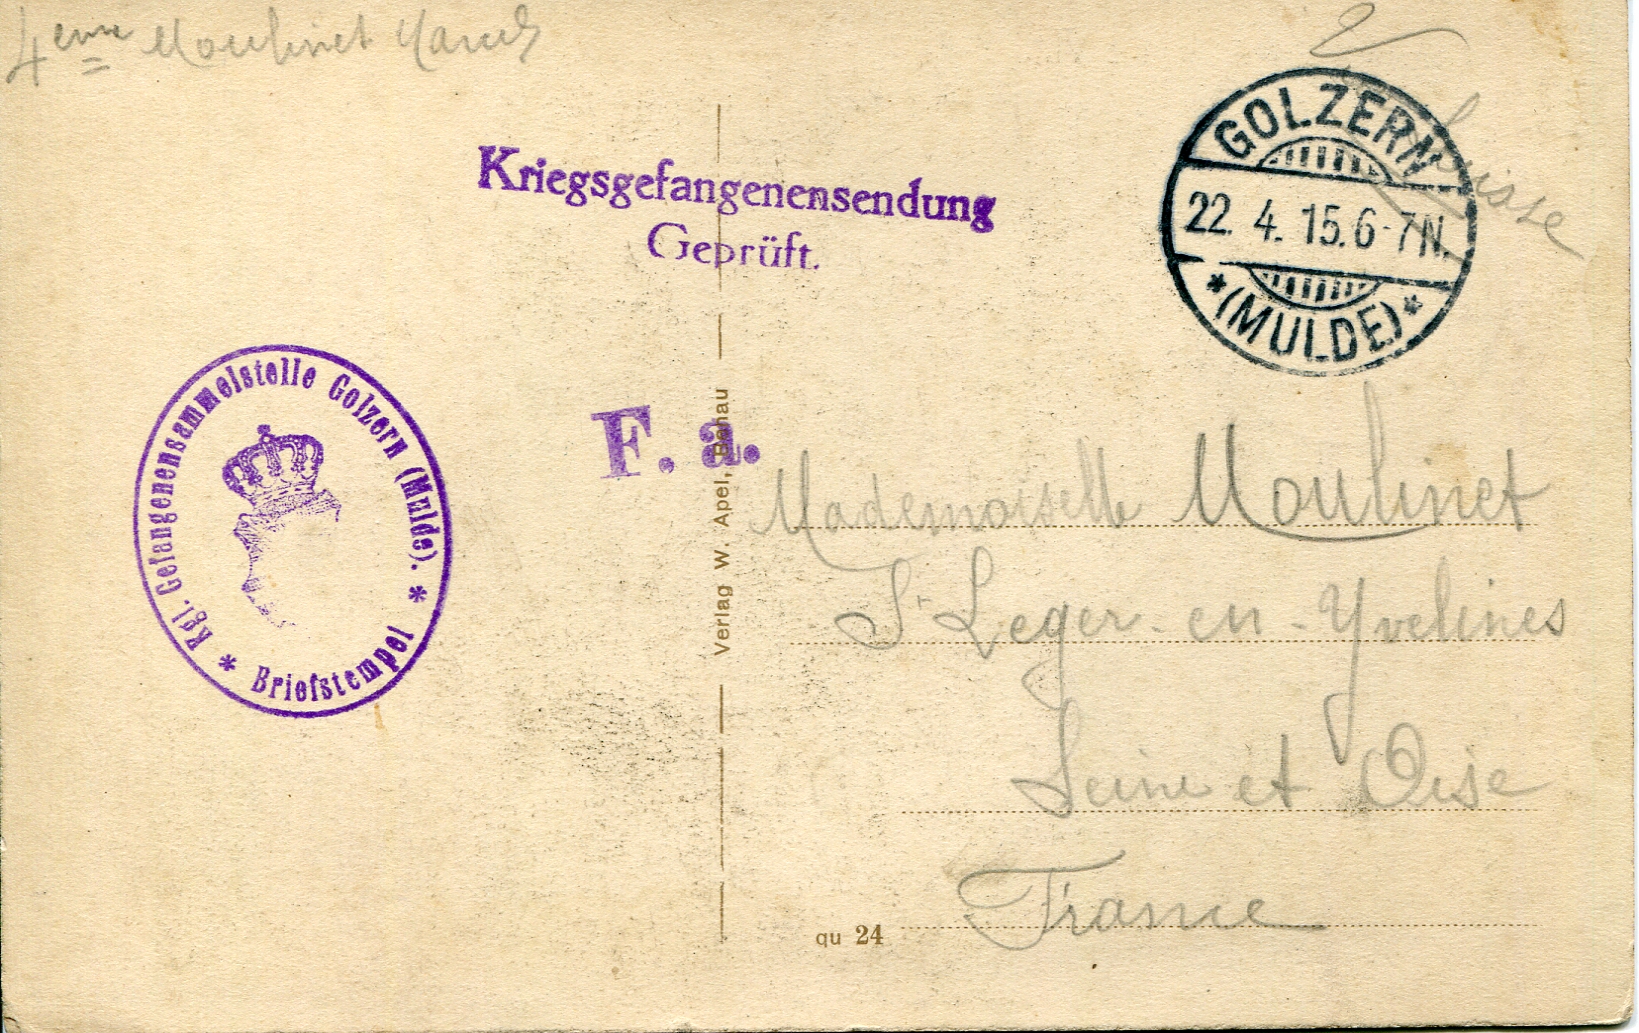 4eme Moulinet
Suisse
Kriegsgefangenensendung
Geprüft.
GOLZERN
22. 4. 15. 6-7 N.
* (MULDE) *
Kgl. Gefangenensammelstelle Golzern (Mulde).
* Briefstempel *
F. a.
Verlag W. Apel,
Mademoiselle Moulinet
St Leger-en-Yvelines
Seine et Oise
France
qu 24